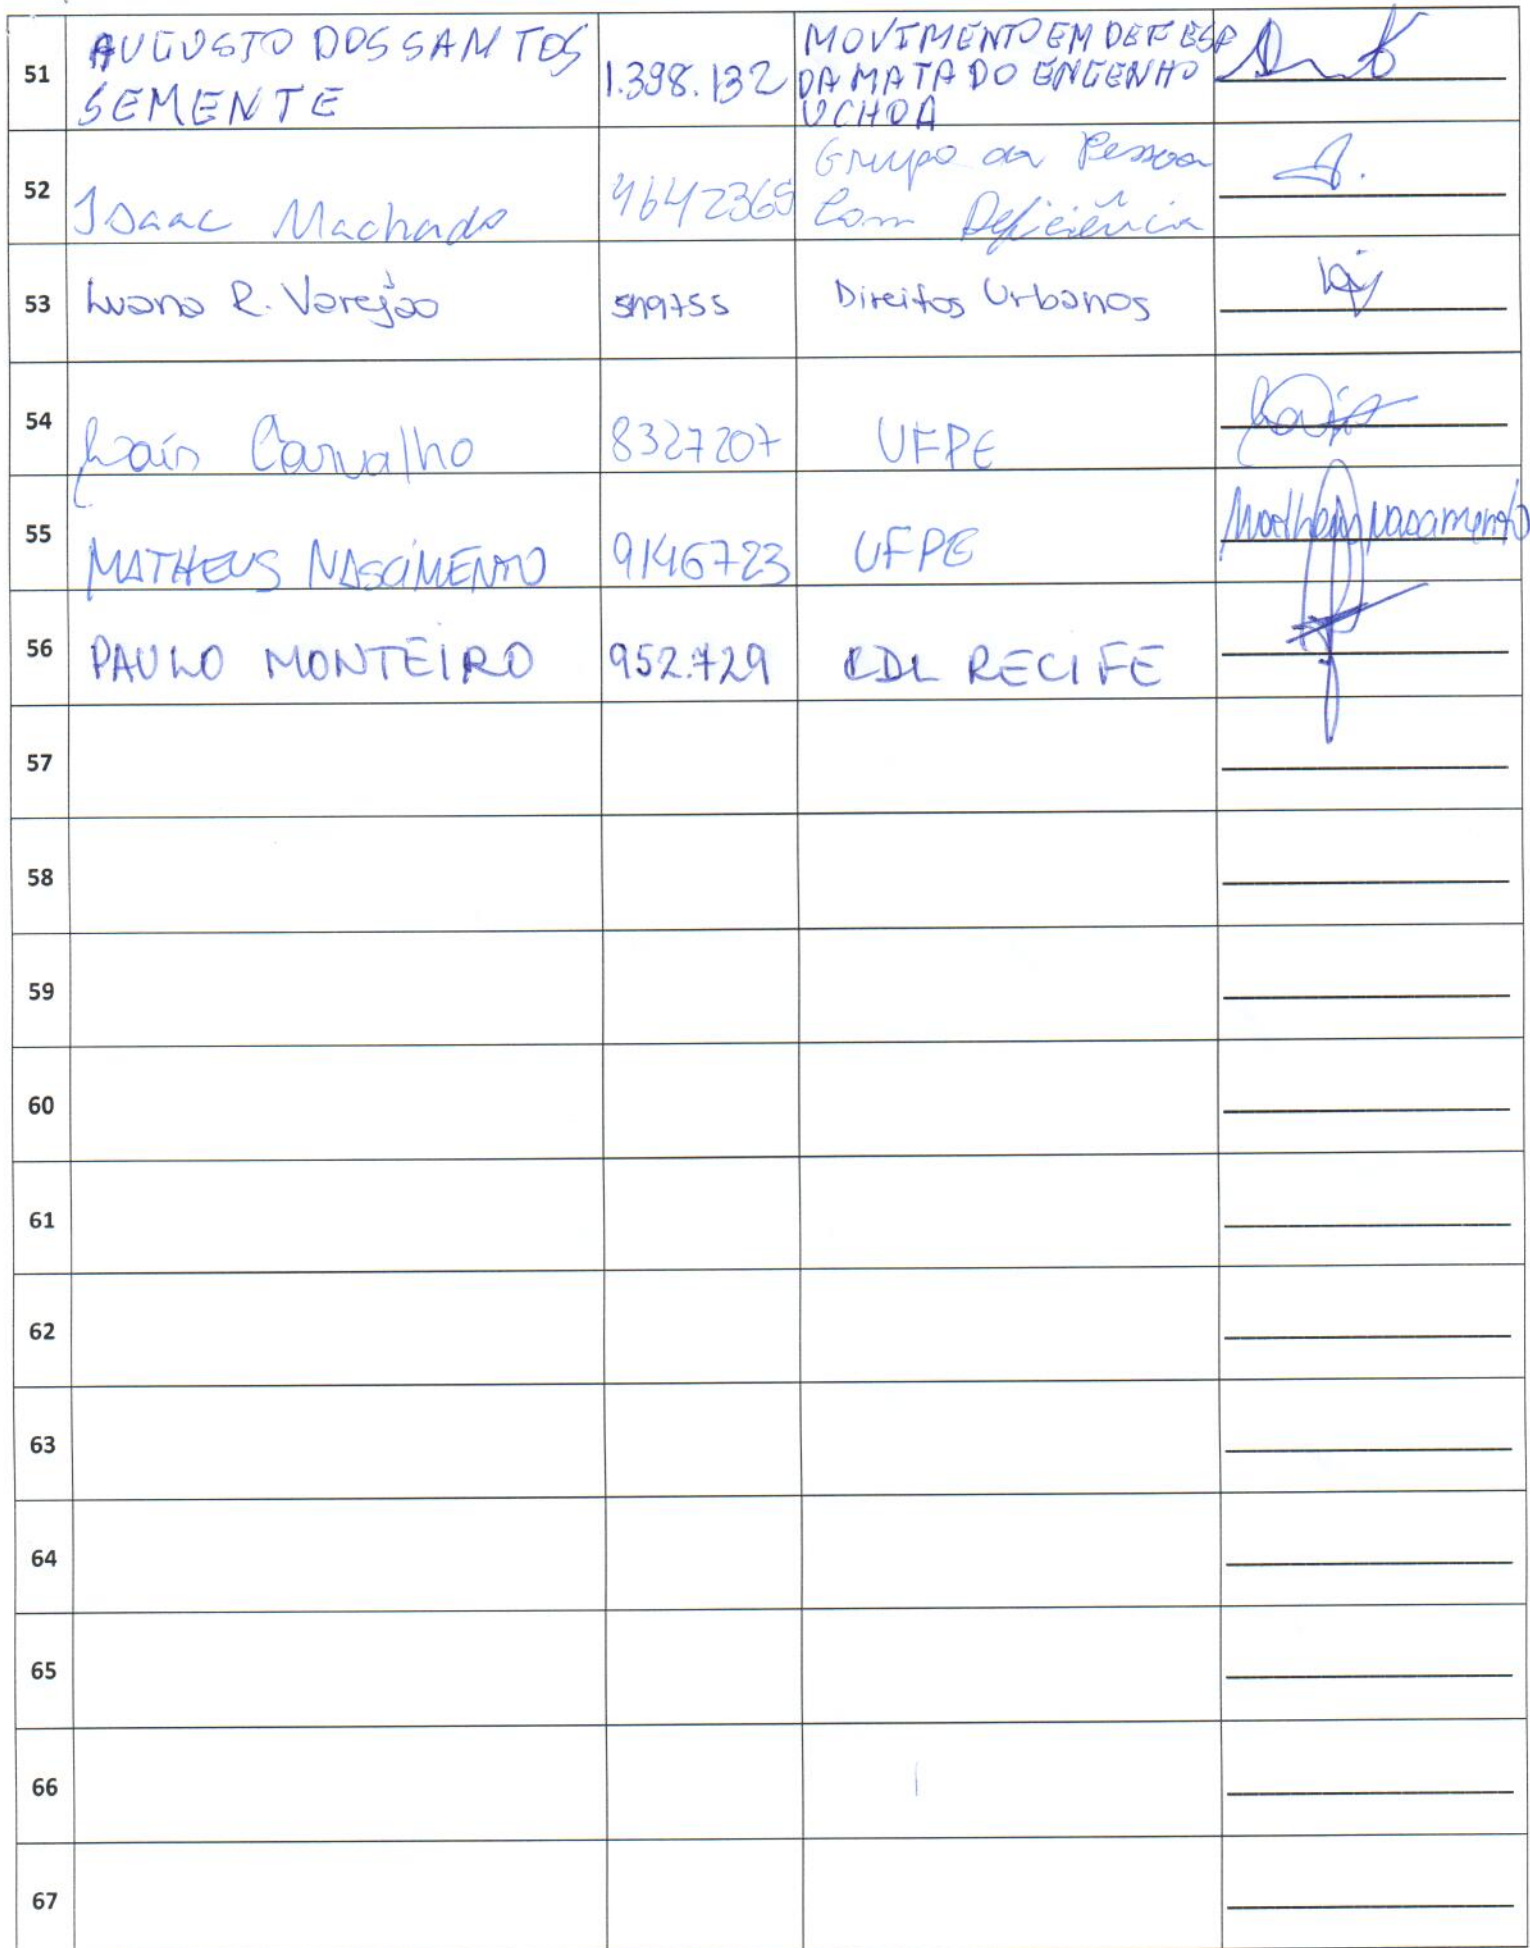 51 AUGUSTO DOS SANTOS SEMENTE 1.398.132 MOVIMENTO EM DEFESA DA MATA DO ENGENHO UCHOA
52 Isaac Machado 4642365 Grupo da Pessoa Com Deficiência
53 Luana R. Varejão Direitos Urbanos
54 Laís Carvalho 8327207 UFPE
55 MATHEUS NASCIMENTO 9146723 UFPE Matheus Nascimento
56 PAULO MONTEIRO 952.729 CDL RECIFE
57
58
59
60
61
62
63
64
65
66
67